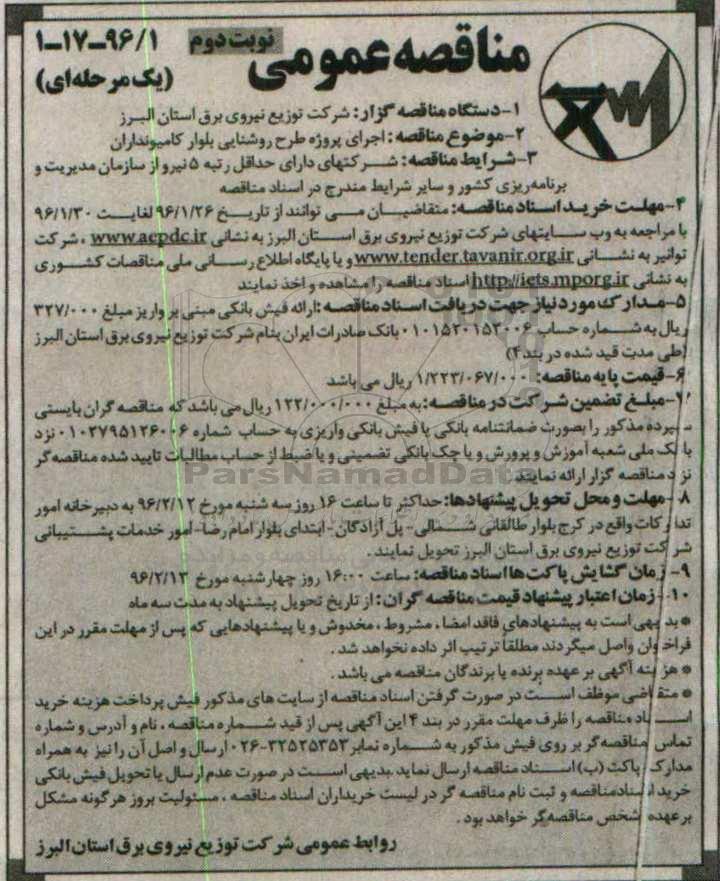 مناقصه عمومی
نوبت دوم
۱-۱۷-۹۶/۱
(یک مرحله‌ای)
۱-دستگاه مناقصه گزار: شرکت توزیع نیروی برق استان البرز
۲-موضوع مناقصه: اجرای پروژه طرح روشنایی بلوار کامیونداران
۳-شرایط مناقصه: شرکتهای دارای حداقل رتبه ۵ نیرو از سازمان مدیریت و
برنامه‌ریزی کشور و سایر شرایط مندرج در اسناد مناقصه
۴-مهلت خرید اسناد مناقصه: متقاضیان می توانند از تاریخ ۹۶/۱/۲۶ لغایت ۹۶/۱/۳۰
با مراجعه به وب سایتهای شرکت توزیع نیروی برق استان البرز به نشانی www.aepdc.ir ، شرکت
توانیر به نشانی www.tender.tavanir.org.ir و یا پایگاه اطلاع رسانی ملی مناقصات کشوری
به نشانی http://iets.mporg.ir اسناد مناقصه را مشاهده و اخذ نمایند
۵-مدارک مورد نیاز جهت دریافت اسناد مناقصه: ارائه فیش بانکی مبنی بر واریز مبلغ ۳۲۷/۰۰۰
ریال به شماره حساب ۰۱۰۱۵۲۰۱۵۲۰۰۶ بانک صادرات ایران بنام شرکت توزیع نیروی برق استان البرز
(طی مدت قید شده در بند ۴)
۶-قیمت پایه مناقصه: ۱/۲۲۳/۰۶۷/۰۰۰ ریال می باشد
۷-مبلغ تضمین شرکت در مناقصه: به مبلغ ۱۲۲/۰۰۰/۰۰۰ ریال می باشد که مناقصه گران بایستی
سپرده مذکور را بصورت ضمانتنامه بانکی یا فیش بانکی واریزی به حساب شماره ۰۱۰۲۷۹۵۱۲۶۰۰۶ نزد
بانک ملی شعبه آموزش و پرورش و یا چک بانکی تضمینی و یا ضبط از حساب مطالبات تایید شده مناقصه گر
نزد مناقصه گزار ارائه نمایند
ParsNamadData
۸-مهلت و محل تحویل پیشنهادها: حداکثر تا ساعت ۱۶ روز سه شنبه مورخ ۹۶/۲/۱۲ به دبیرخانه امور
تدارکات واقع در کرج بلوار طالقانی شمالی- پل آزادگان- ابتدای بلوار امام رضا- امور خدمات پشتیبانی
شرکت توزیع نیروی برق استان البرز تحویل نمایند .
۹- زمان گشایش پاکت ها اسناد مناقصه: ساعت ۱۶:۰۰ روز چهارشنبه مورخ ۹۶/۲/۱۳
۱۰- زمان اعتبار پیشنهاد قیمت مناقصه گران: از تاریخ تحویل پیشنهاد به مدت سه ماه
* بدیهی است به پیشنهادهای فاقد امضا ، مشروط ، مخدوش و یا پیشنهادهایی که پس از مهلت مقرر در این
فراخوان واصل میگردند مطلقاً ترتیب اثر داده نخواهد شد .
* هزینه آگهی بر عهده برنده یا برندگان مناقصه می باشد .
* متقاضی موظف است در صورت گرفتن اسناد مناقصه از سایت های مذکور فیش پرداخت هزینه خرید
اسناد مناقصه را ظرف مهلت مقرر در بند ۴ این آگهی پس از قید شماره مناقصه ، نام و آدرس و شماره
تماس مناقصه گر بر روی فیش مذکور به شماره نمابر ۳۲۵۲۵۳۵۳-۰۲۶ ارسال و اصل آن را نیز به همراه
مدارک پاکت (ب) اسناد مناقصه ارسال نماید .بدیهی است در صورت عدم ارسال یا تحویل فیش بانکی
خرید اسناد مناقصه و ثبت نام مناقصه گر در لیست خریداران اسناد مناقصه ، مسئولیت بروز هرگونه مشکل
بر عهده شخص مناقصه گر خواهد بود .
روابط عمومی شرکت توزیع نیروی برق استان البرز